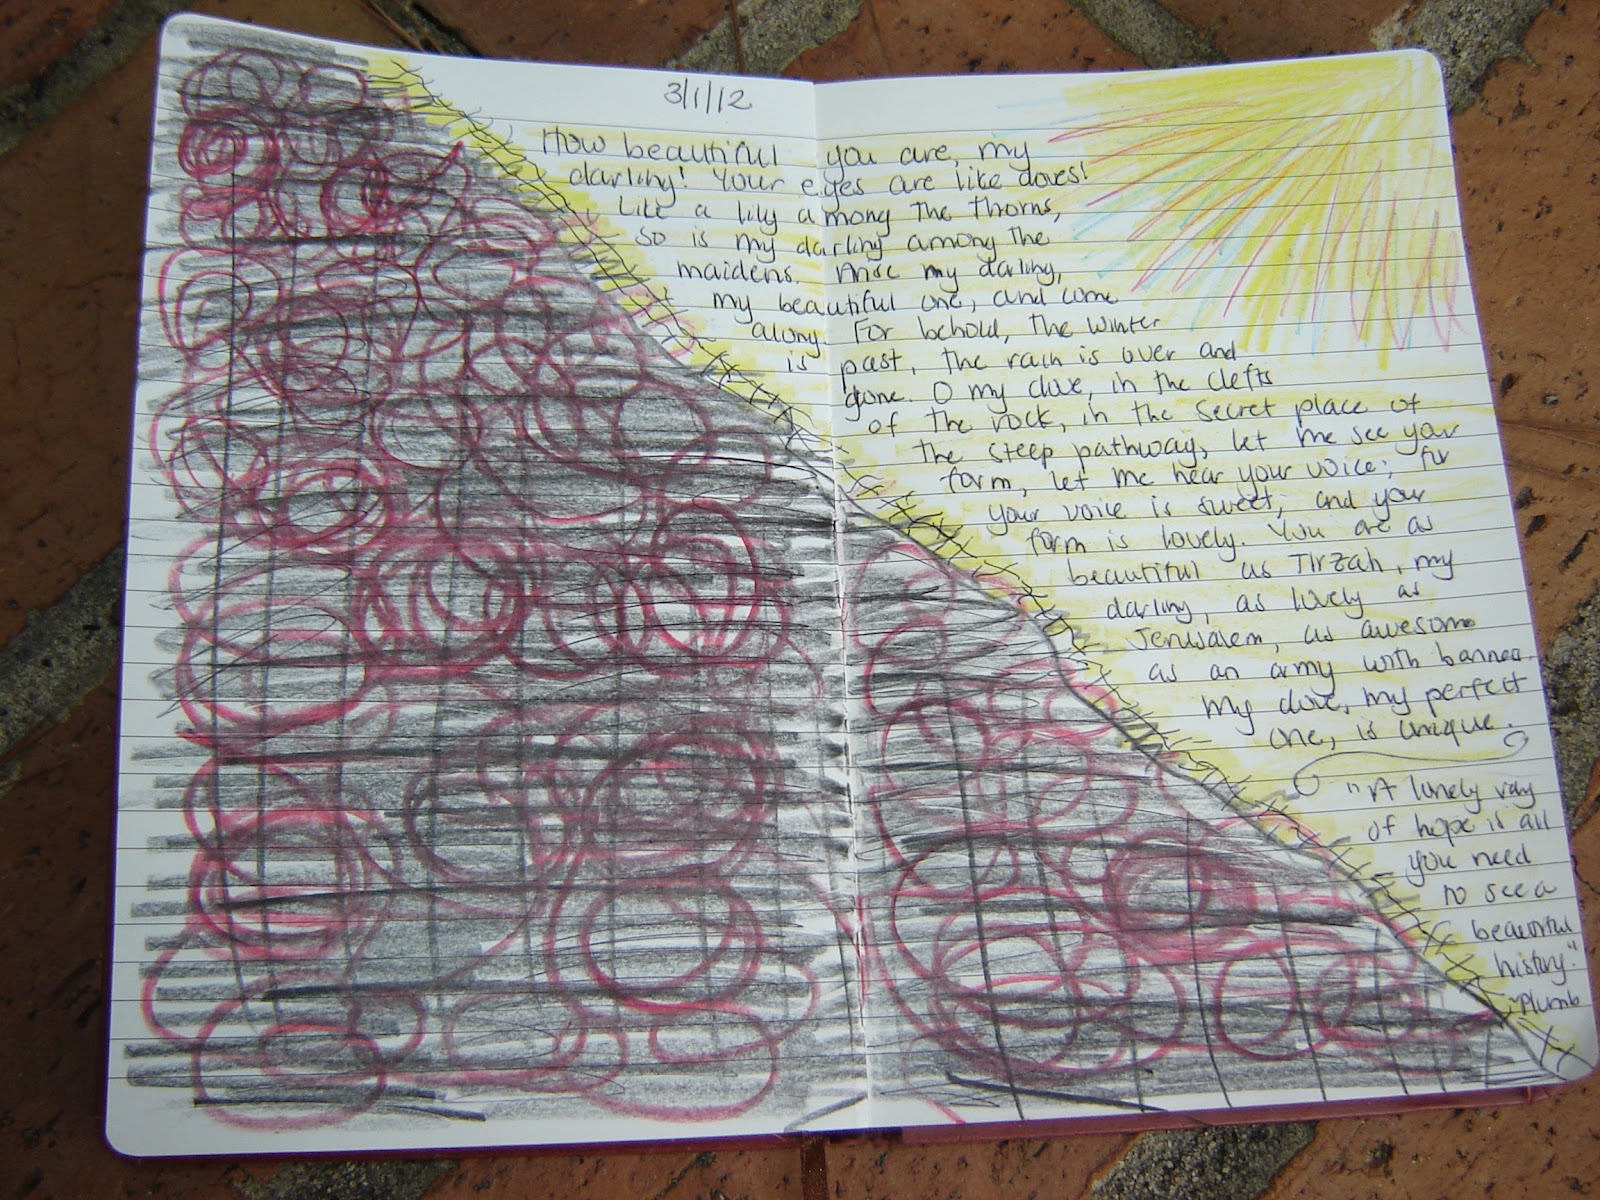 3/1/12
How beautiful you are, my
darling! Your eyes are like doves!
Like a lily among the thorns,
so is my darling among the
maidens. Arise my darling,
my beautiful one, and come
along. For behold, the winter
is past, the rain is over and
gone. O my dove, in the clefts
of the rock, in the secret place of
the steep pathway, let me see your
form, let me hear your voice; for
your voice is sweet, and your
form is lovely. You are as
beautiful as Tirzah, my
darling, as lovely as
Jerusalem, as awesome
as an army with banners.
My dove, my perfect
one, is unique.
"A lonely ray
of hope is all
you need
to see a
beautiful
history."
~Plumb